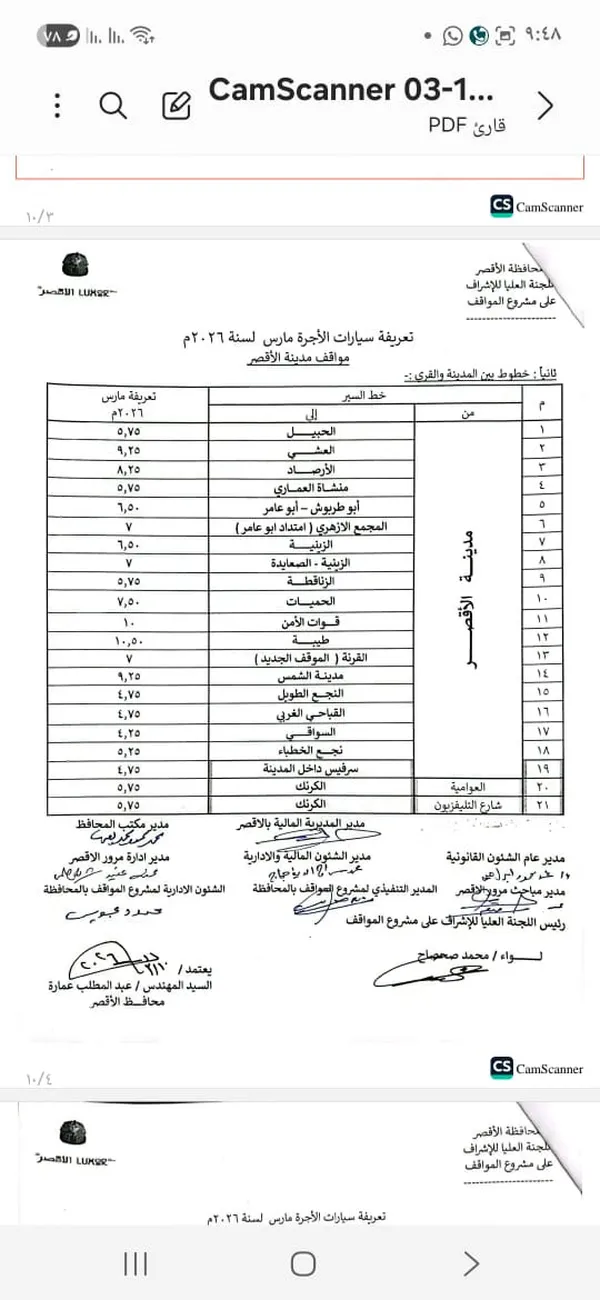 ٩:٤٨
٧٨
CamScanner 03-1...
قارئ PDF
CS CamScanner
١٠/٣
محافظة الأقصر
اللجنة العليا للإشراف
على مشروع المواقف
الأقصر LUXOR
تعريفة سيارات الأجرة مارس لسنة ٢٠٢٦م
مواقف مدينة الأقصر
ثانياً : خطوط بين المدينة والقري :-
م | خط السير | تعريفة مارس ٢٠٢٦م
من | إلي
مدينة الأقصر
١ | الحبيل | ٥,٧٥
٢ | العشي | ٩,٢٥
٣ | الأرصاد | ٨,٢٥
٤ | منشاة العماري | ٥,٧٥
٥ | أبو طربوش – أبو عامر | ٦,٥٠
٦ | المجمع الازهري ( امتداد ابو عامر ) | ٧
٧ | الزينية | ٦,٥٠
٨ | الزينية - الصعايدة | ٧
٩ | الزناقطة | ٥,٧٥
١٠ | الحميات | ٧,٥٠
١١ | قوات الأمن | ١٠
١٢ | طيبة | ١٠,٥٠
١٣ | القرنة ( الموقف الجديد ) | ٧
١٤ | مدينة الشمس | ٩,٢٥
١٥ | النجع الطويل | ٤,٧٥
١٦ | القباحي الغربي | ٤,٧٥
١٧ | السواقي | ٤,٢٥
١٨ | نجع الخطباء | ٥,٢٥
١٩ | سرفيس داخل المدينة | ٤,٧٥
٢٠ | العوامية | الكرنك | ٥,٧٥
٢١ | شارع التليفزيون | الكرنك | ٥,٧٥
مدير المديرية المالية بالاقصر
مدير مكتب المحافظ
مدير عام الشئون القانونية
مدير الشئون المالية والادارية
مدير ادارة مرور الاقصر
مدير مباحث مرور الاقصر
المدير التنفيذي لمشروع المواقف بالمحافظة
الشئون الادارية لمشروع المواقف بالمحافظة
رئيس اللجنة العليا للإشراف على مشروع المواقف
لواء / محمد صحصاح
يعتمد /
٢٠٢٦
السيد المهندس / عبد المطلب عمارة
محافظ الأقصر
CS CamScanner
١٠/٤
محافظة الأقصر
اللجنة العليا للإشراف
على مشروع المواقف
الأقصر LUXOR
تعريفة سيارات الأجرة مارس لسنة ٢٠٢٦م